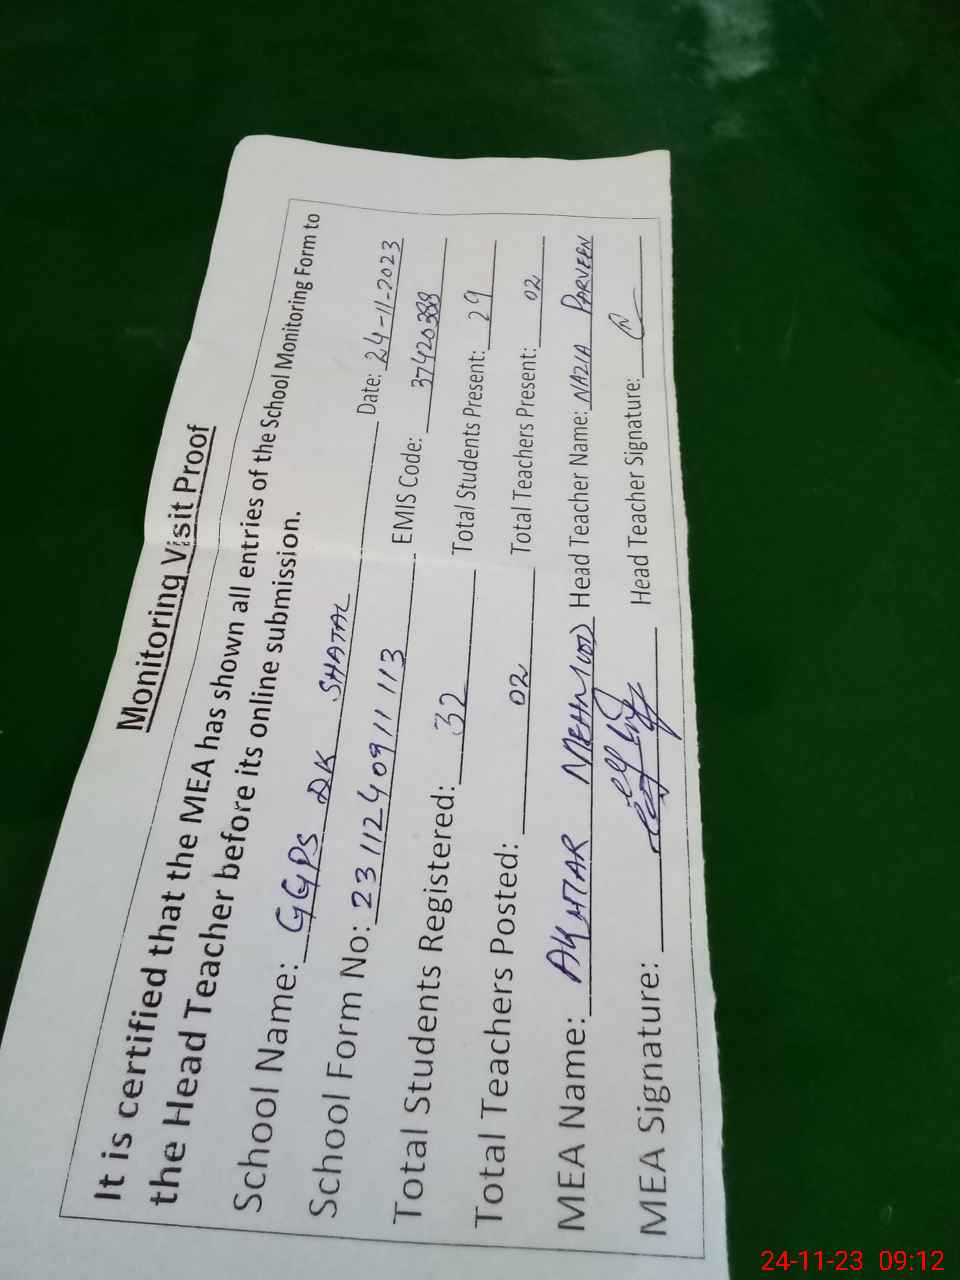 Monitoring Visit Proof
It is certified that the MEA has shown all entries of the School Monitoring Form to
the Head Teacher before its online submission.
School Name: GGPS DK SHATAL Date: 24-11-2023
School Form No: 231124091113 EMIS Code: 37420388
Total Students Registered: 32 Total Students Present: 29
Total Teachers Posted: 02 Total Teachers Present: 02
MEA Name: AKHTAR MEHMOOD Head Teacher Name: NAZIA PARVEEN
MEA Signature: Head Teacher Signature:
24-11-23 09:12